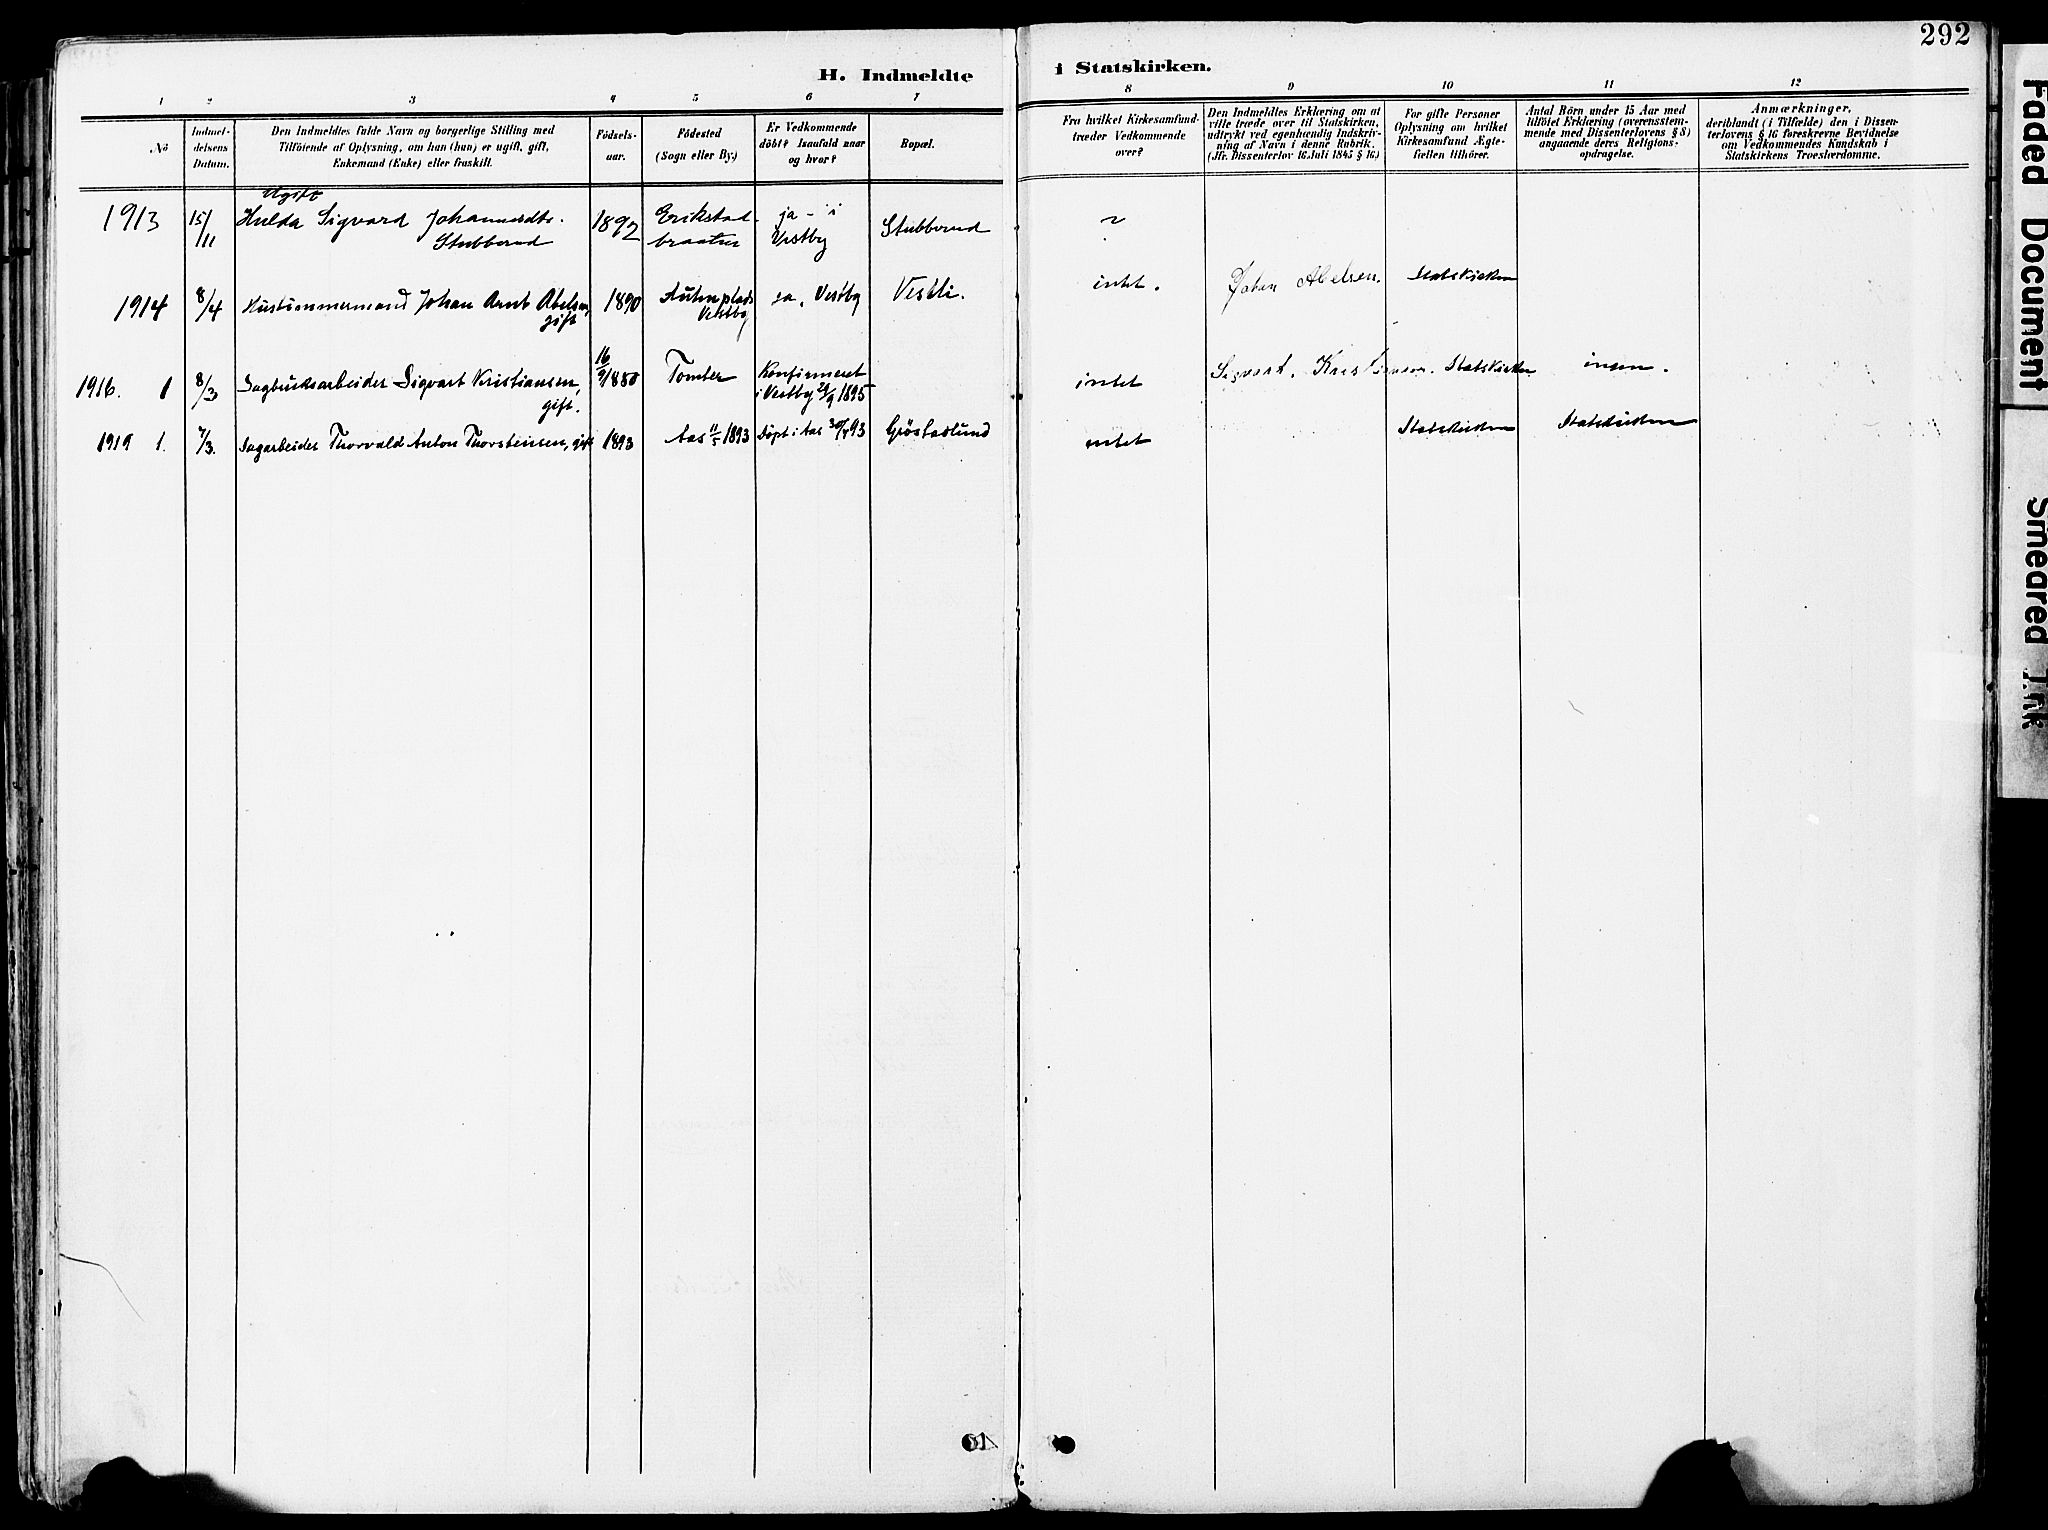 292
H. Indmeldte i Statskirken.
1 2 3 4 5 6 7 8 9 10 11 12
No
Indmel-
delsens
Datum.
Den Indmeldtes fulde Navn og borgerlige Stilling med
Tilföiende af Oplysning, om han (hun) er ugift, gift,
Enkemand (Enke) eller fraskilt.
Födsels-
aar.
Födested
(Sogn eller By.)
Er Vedkommende
döbt? Isaafald naar
og hvor?
Bopæl.
Fra hvilket Kirkesamfund
træder Vedkommende
over?
Den Indmeldtes Erklæring om at
ville træde over til Statskirken,
udtrykt ved egenhændig Indskriv-
ning af Navn i denne Rubrik.
(Jfr. Dissenterlov 16 Juli 1845 § 16.)
For gifte Personer
Oplysning om hvilket
Kirkesamfund Ægte-
fællen tilhörer.
Antal Börn under 15 Aar med
tilföiet Erklæring (overensstem-
mende med Dissenterlovens § 8)
angaaende deres Religions-
opdragelse.
Anmærkninger,
deriblandt (i Tilfælde) den i Dissen-
terlovens § 16 foreskrevne Bevidnelse
om Vedkommendes Kundskab i
Statskirkens Troeslærdomme.
Ugift
1913 15/11 Hulda Sigvard Johannesdtr. 1892 Erikstad- ja - i Stubberud ?
Stubberud braaten Vestby
1914 8/4 Hustømmermand Johan Arnt Abelsen, 1890 ja, Vestby Vestli. intet. Johan Abelsen. Statskirken
gift Vestby
1916. 1 8/3 Sagbruksarbeider Sigvart Kristiansen, 16/9 1880 Tomter Konfirmeret intet Sigvart. Kristiansen. Statskirken ingen.
gift. i Vestby 29/9 1895
1919 1. 7/3. Sagarbeider Thorvald Anton Thorstensen, gift 1893 Aas 11/5 1893 Döpt i Aas 93 Gröstadlund intet Statskirken Statskirken
Faded Document
Smeared Ink